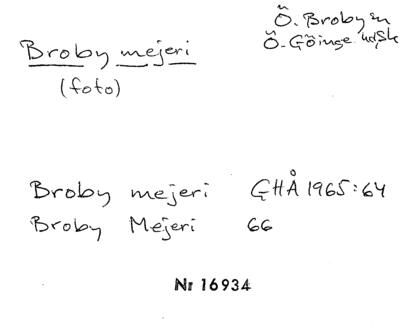 Ö. Broby sn
Broby mejeri
Ö. Göinge hd, Sk
(foto)
Broby mejeri GHÅ 1965:64
Broby Mejeri 66
Nr 16934